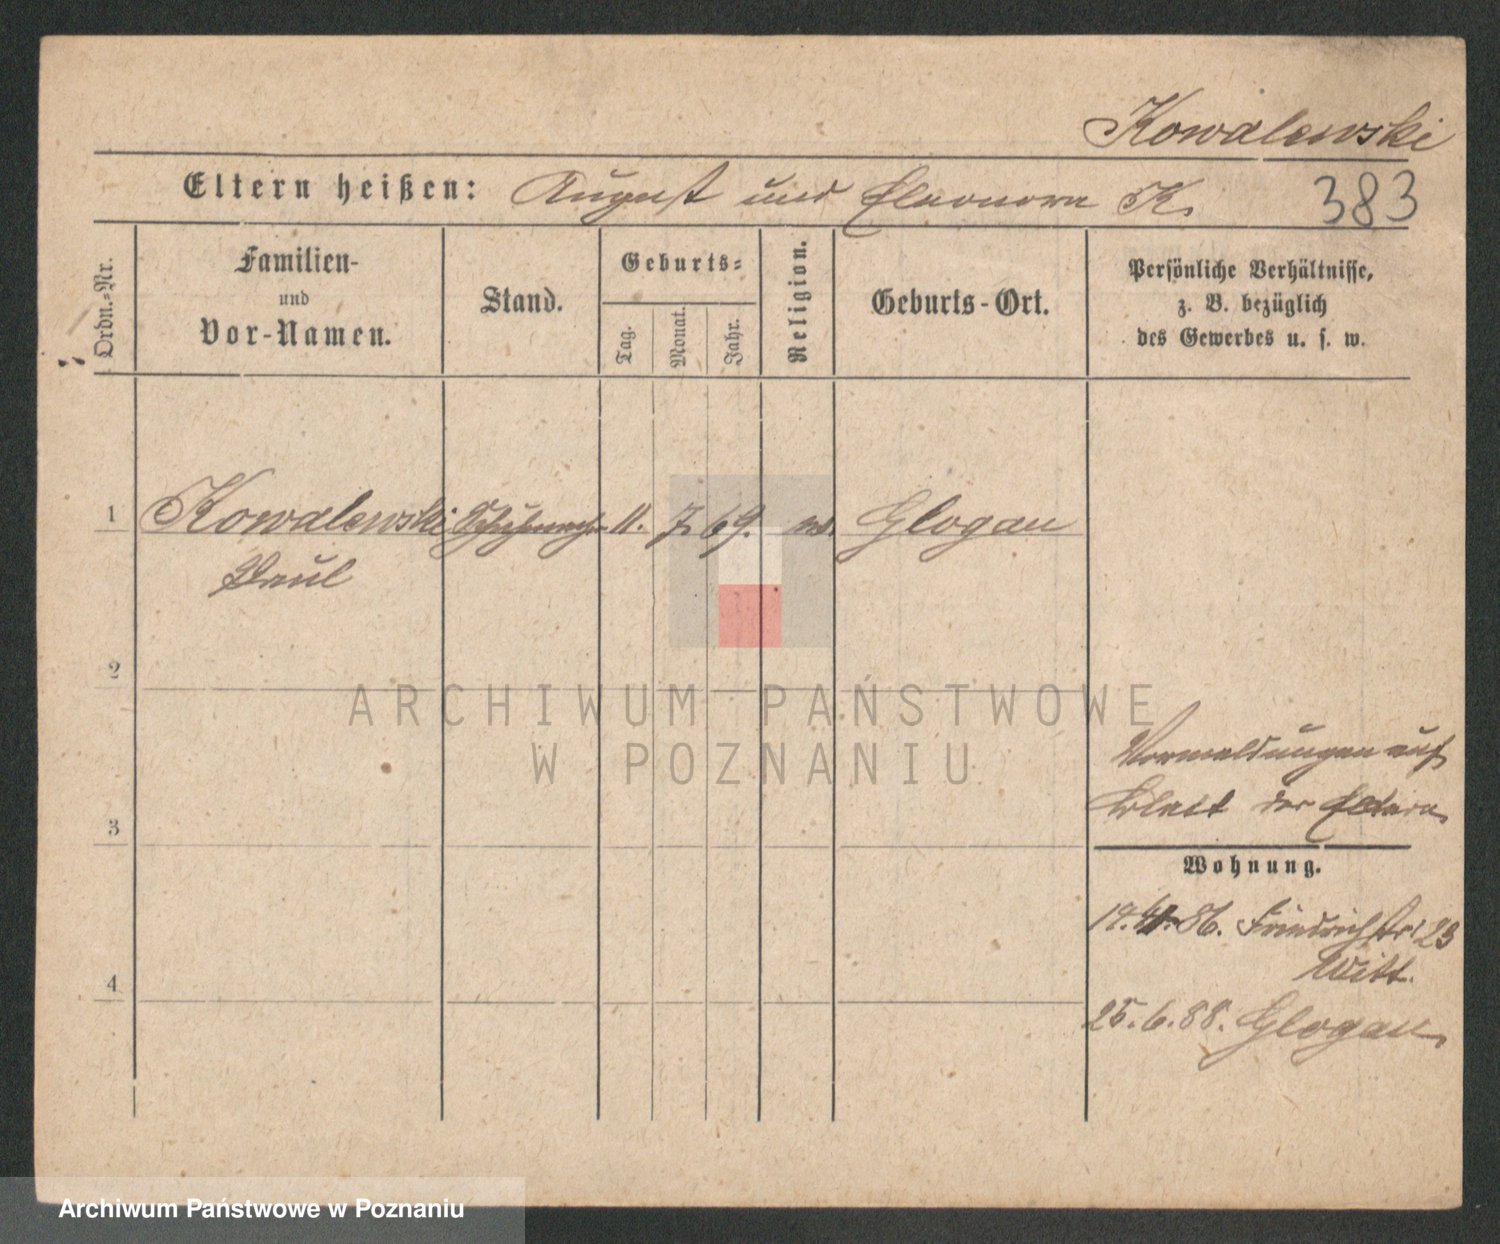 Kowalewski
Eltern heißen: August und Eleonore K.
383
Ordn.-Nr.
Familien-
und
Vor-Namen.
Stand.
Geburts-
Tag.
Monat.
Jahr.
Religion.
Geburts-Ort.
Persönliche Verhältnisse,
z. B. bezüglich
des Gewerbes u. s. w.
1 Kowalewski 11. 7. 69. Glogau
Paul
2
ARCHIWUM PAŃSTWOWE
W POZNANIU
Vormeldungen auf
3 Blatt der Eltern
Wohnung.
86. Friedrichstr. 23
Witt.
4
25. 6. 88. Glogau
Archiwum Państwowe w Poznaniu